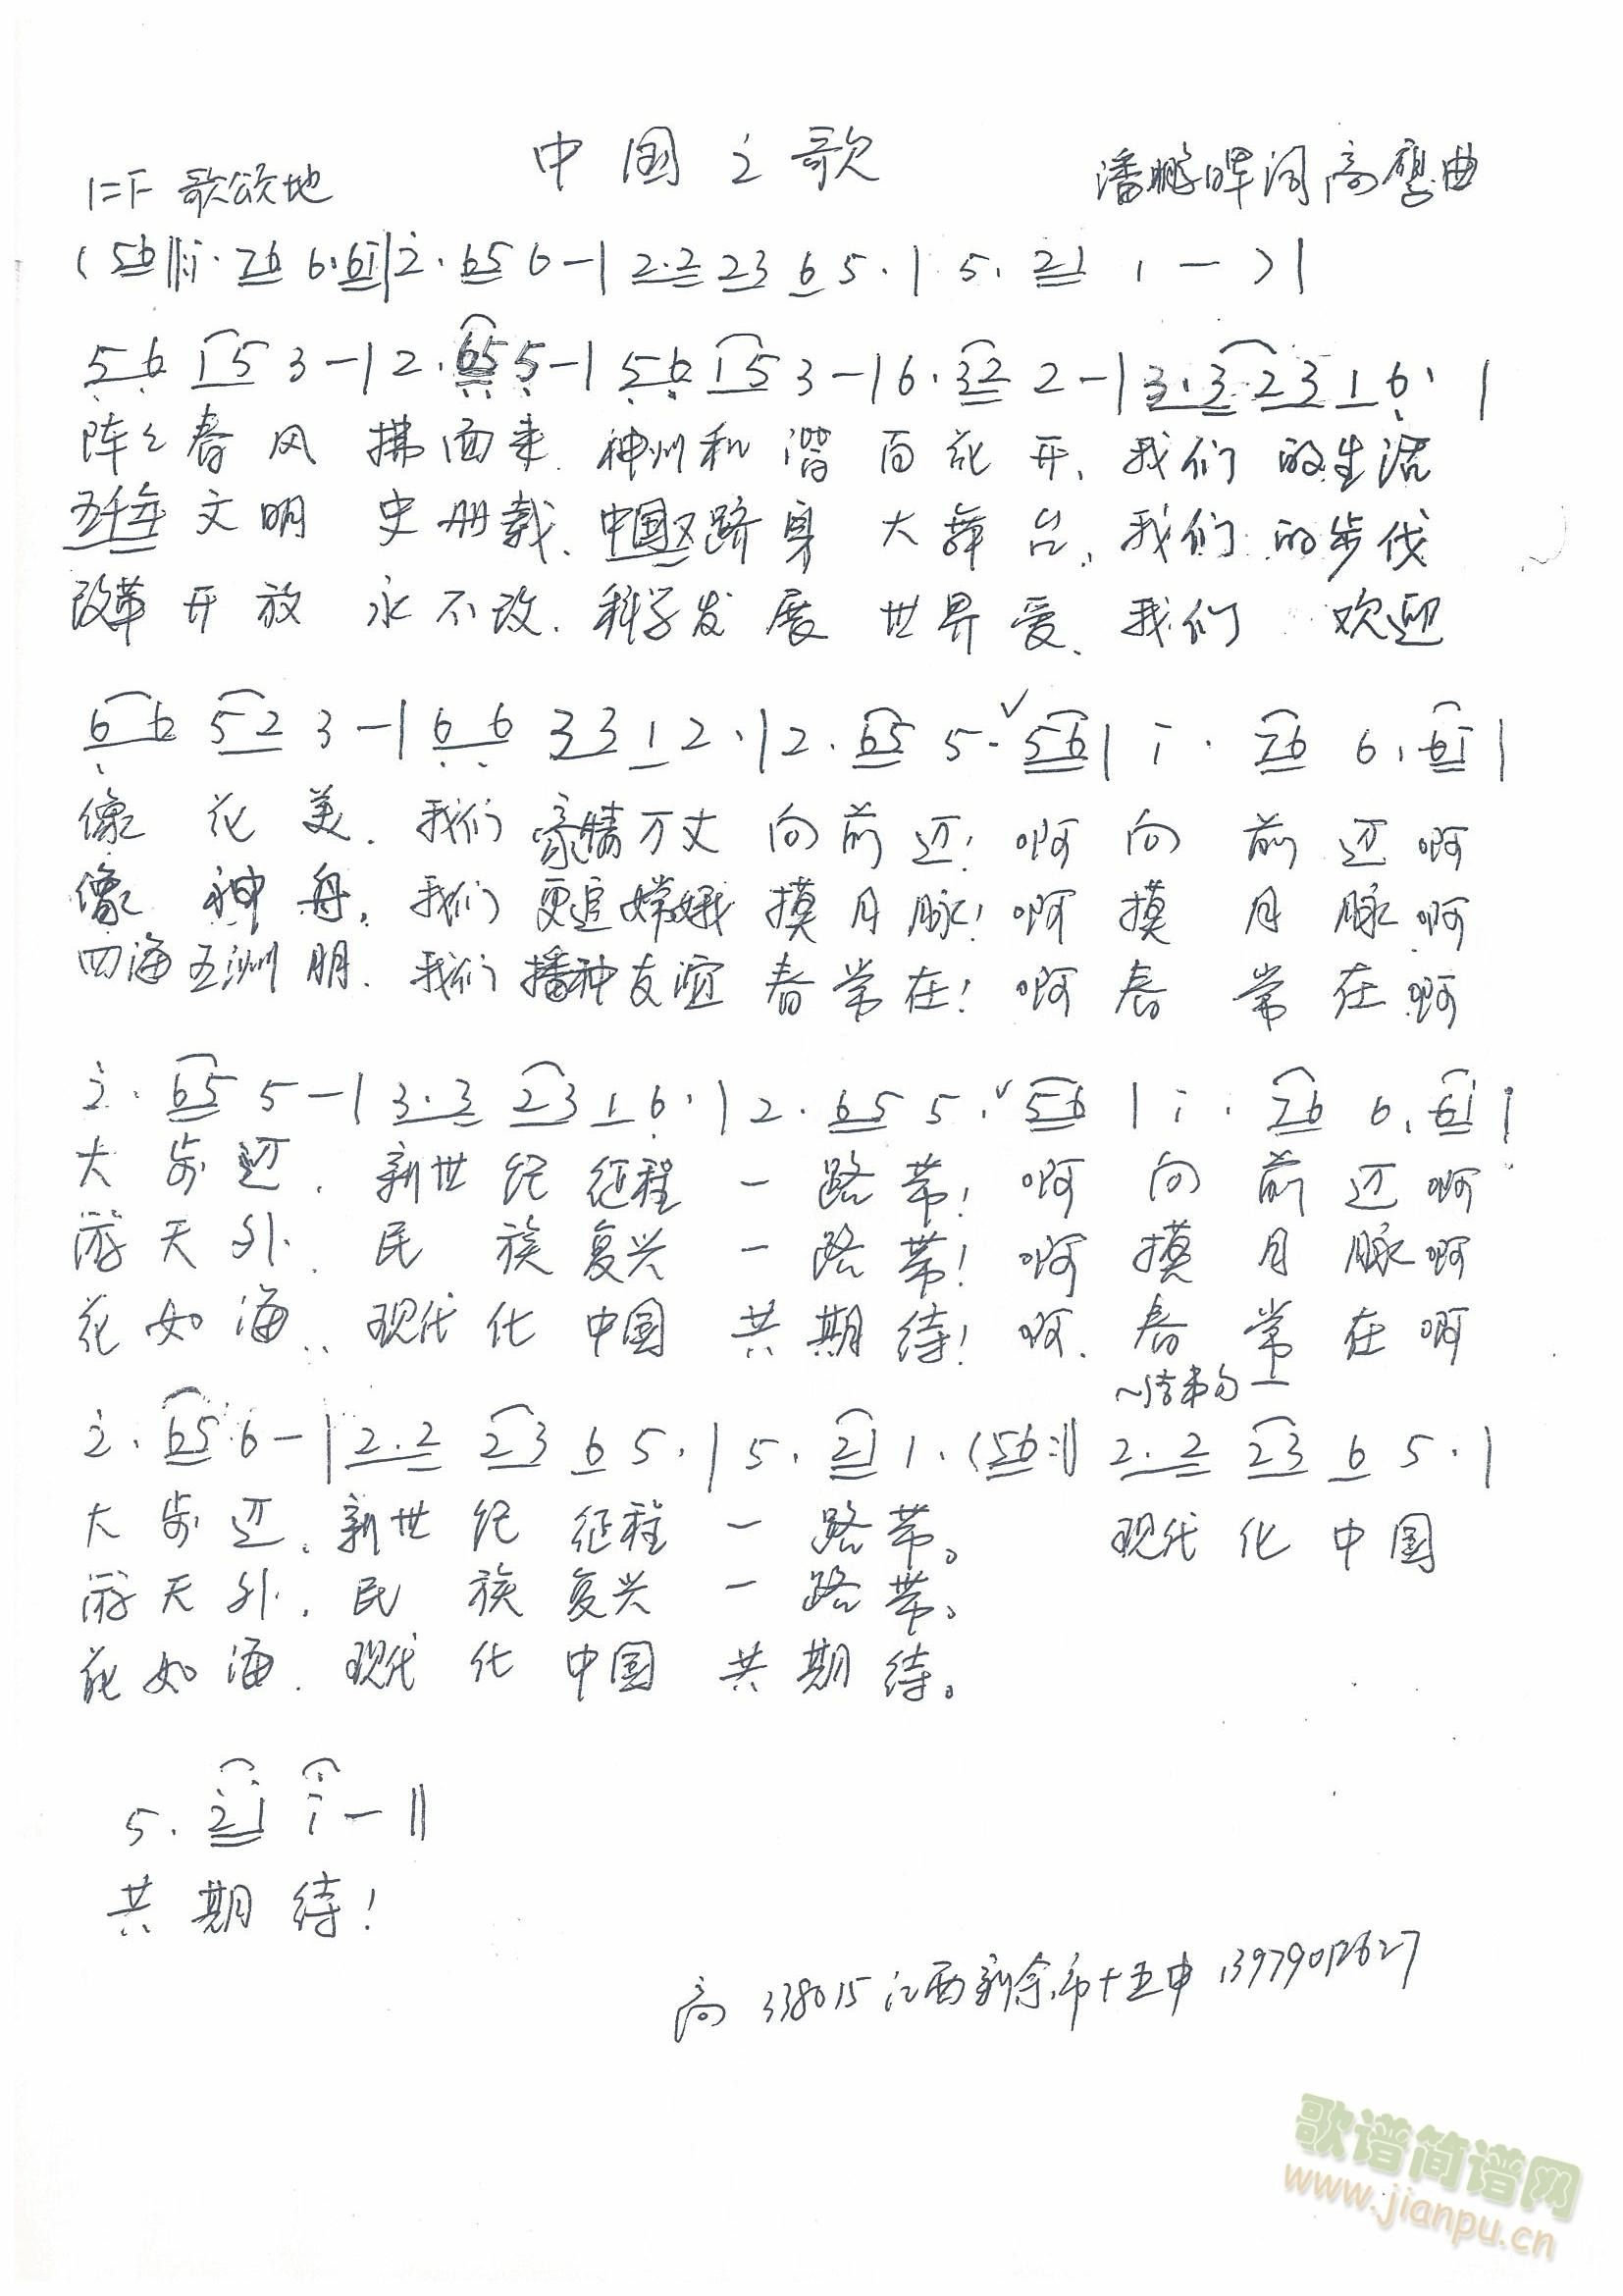 中国之歌
1=F 歌颂地 潘鹏晖词 高鹰曲
( 56 ‖: i· 76 6· 6i | 2· 65 6 - | 2·2 23 6 5· | 5· 21 1 - ) |
56 15 3 - | 2· 65 5 - | 56 15 3 - | 6· 32 2 - | 3·3 23 1 6· |
阵々春风 拂面来. 神州和谐 百花开, 我们的生活
五千年文明 史册载. 中国又跻身 大舞台, 我们的步伐
改革开放 永不改. 科学发展 世界爱. 我们 欢迎
66 52 3 - | 66 33 1 2· | 2· 65 5· ✓56 | i· 76 6· 6i |
像花美. 我们豪情万丈 向前迈! 啊 向前迈 啊
像神舟. 我们更追嫦娥 摸月脉! 啊 摸月脉 啊
四海五洲朋. 我们播种友谊 春常在! 啊 春常在 啊
2· 65 5 - | 3·3 23 1 6· | 2· 65 5· ✓56 | i· 76 6· 6i |
大步迈. 新世纪征程 一路带! 啊 向前迈 啊
游天外. 民族复兴 一路带! 啊 摸月脉 啊
花如海. 现代化中国 共期待! 啊. 春常在 啊
～结束句—
2· 65 6 - | 2·2 23 6 5· | 5· 21 1· (56 :‖ 2·2 23 6 5· |
大步迈. 新世纪征程 一路带。 现代化中国
游天外. 民族复兴 一路带。
花如海. 现代化中国 共期待。
5· 2i i - ‖
共期待!
高 338015 江西新余市十五中 13979012627
歌谱简谱网
www.jianpu.cn